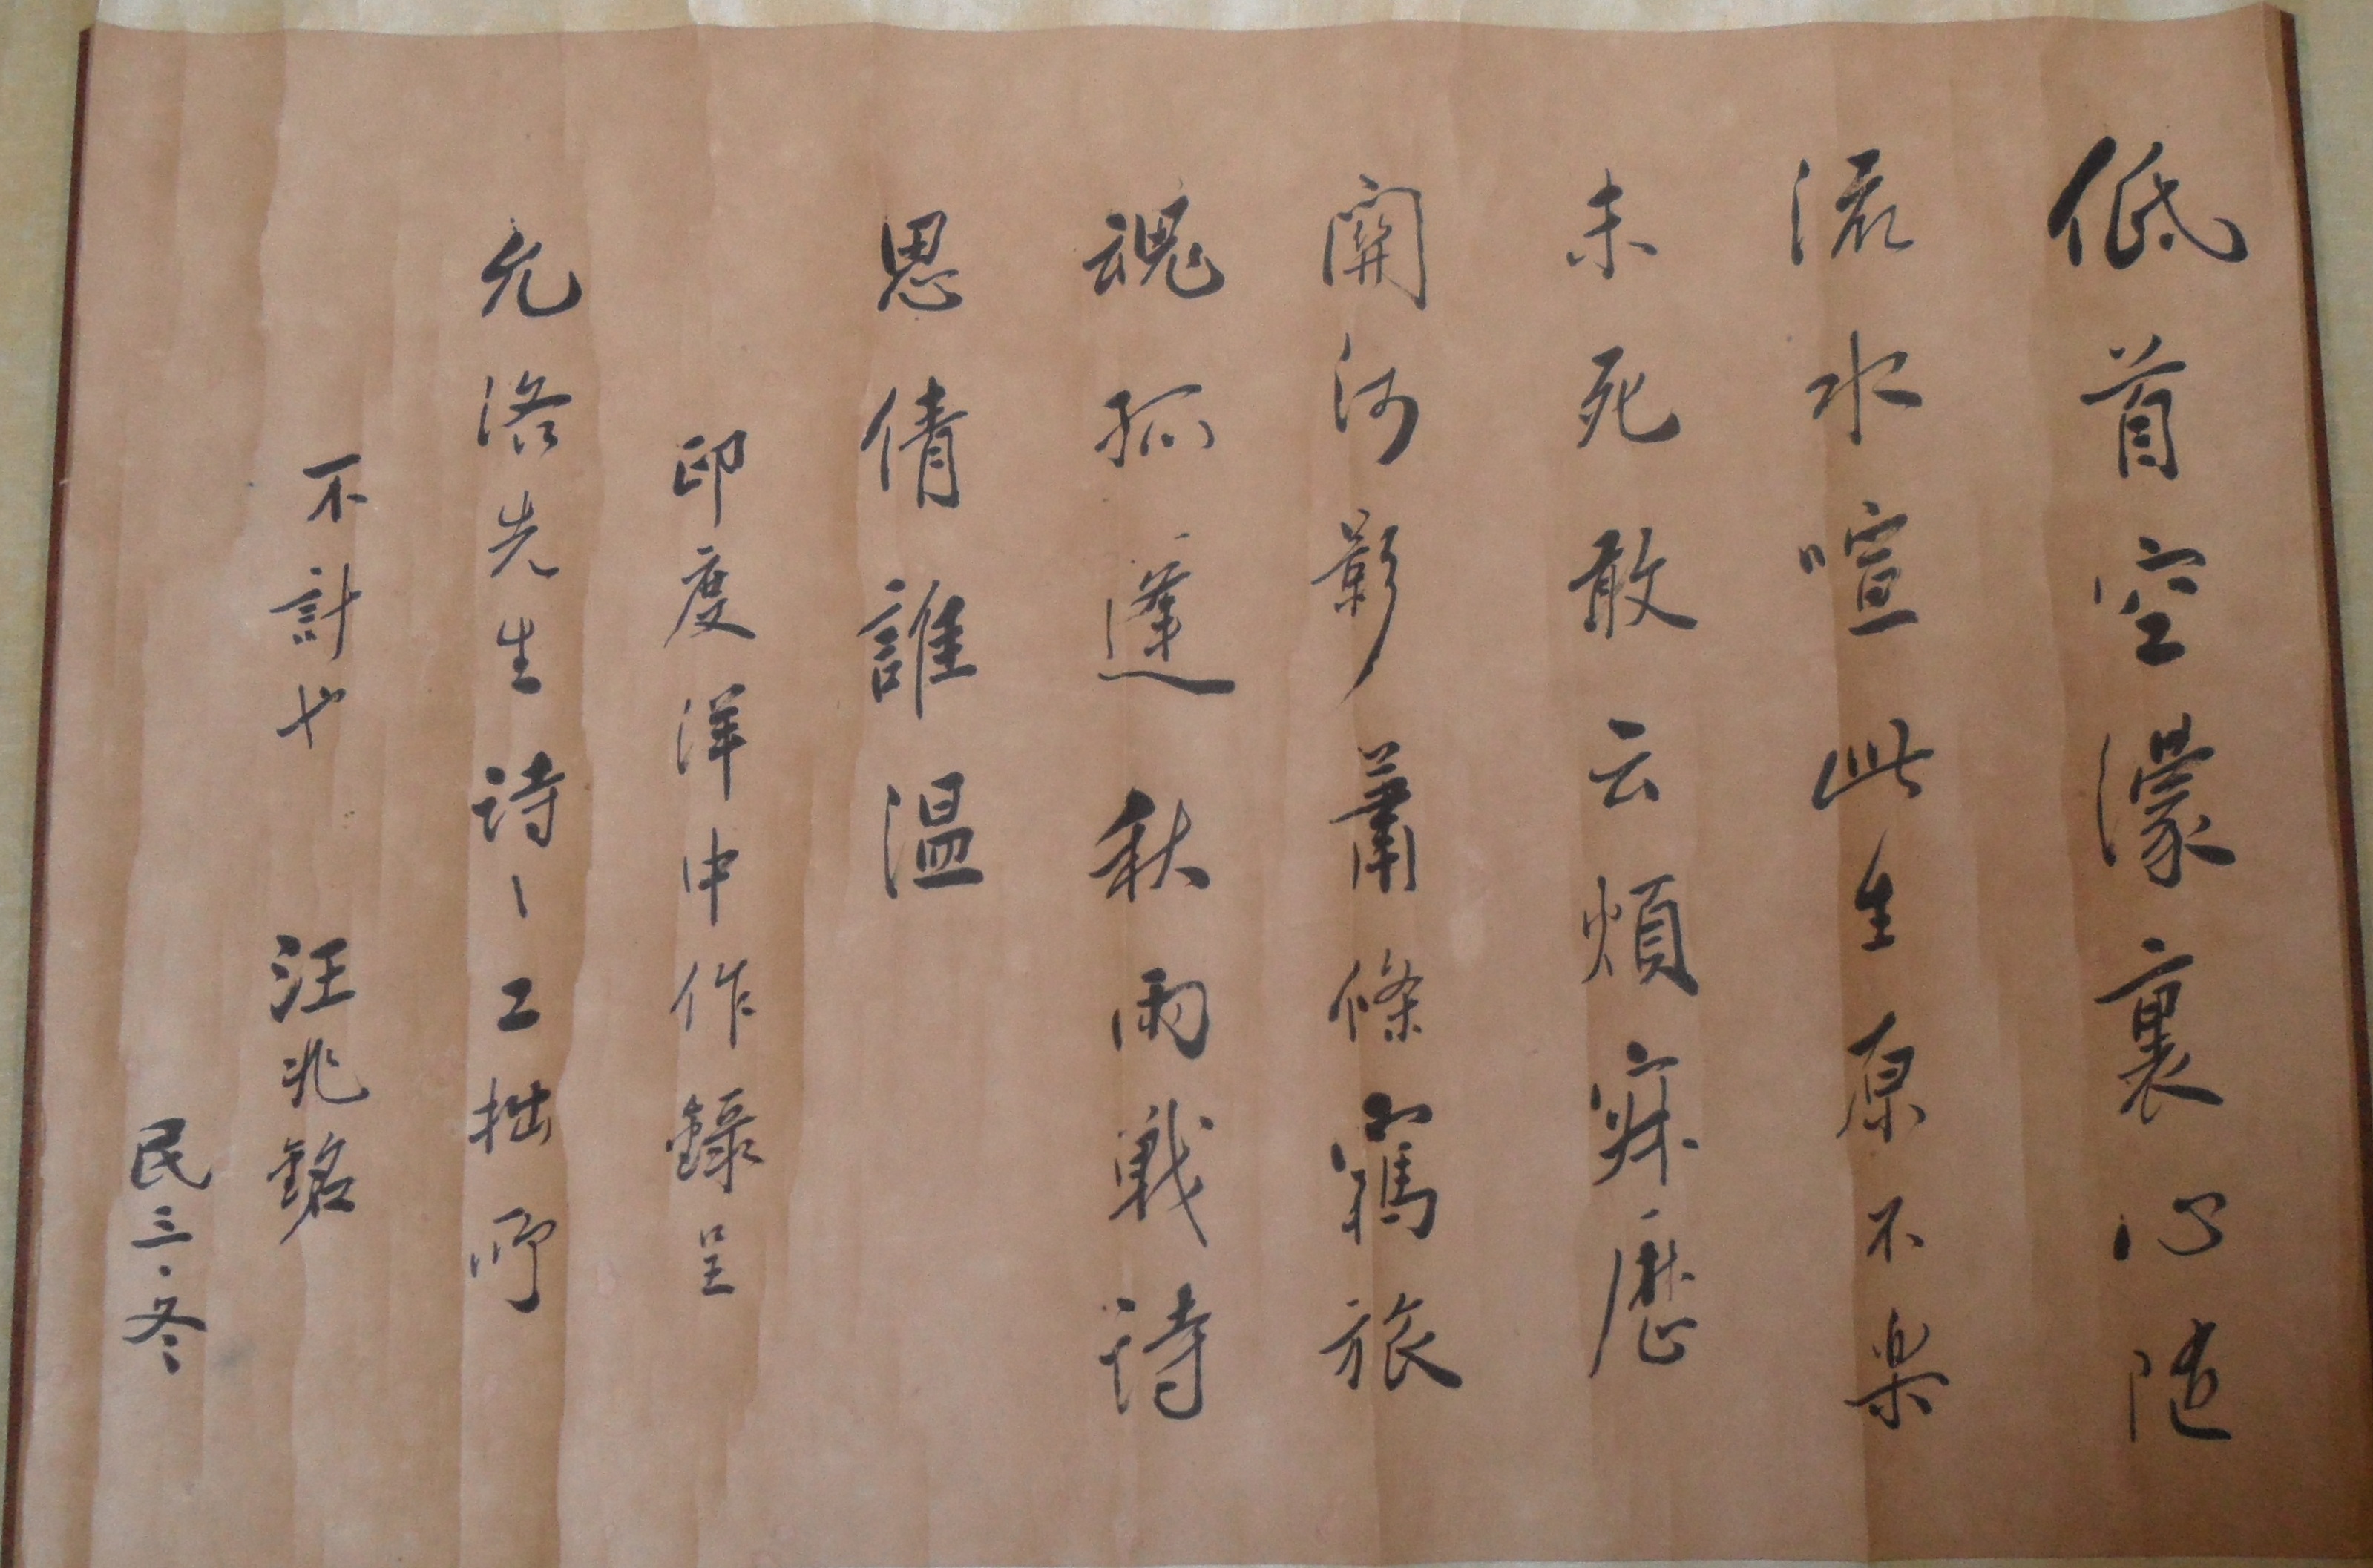 低首空濛裏心随
流水喧此生原不楽
未死敢云煩寂歷
關河影蕭條羇旅
魂孤蓬秋雨戦詩
思倩誰温
印度洋中作錄呈
允洛先生詩之工拙所
不計也 汪兆銘
民三·冬